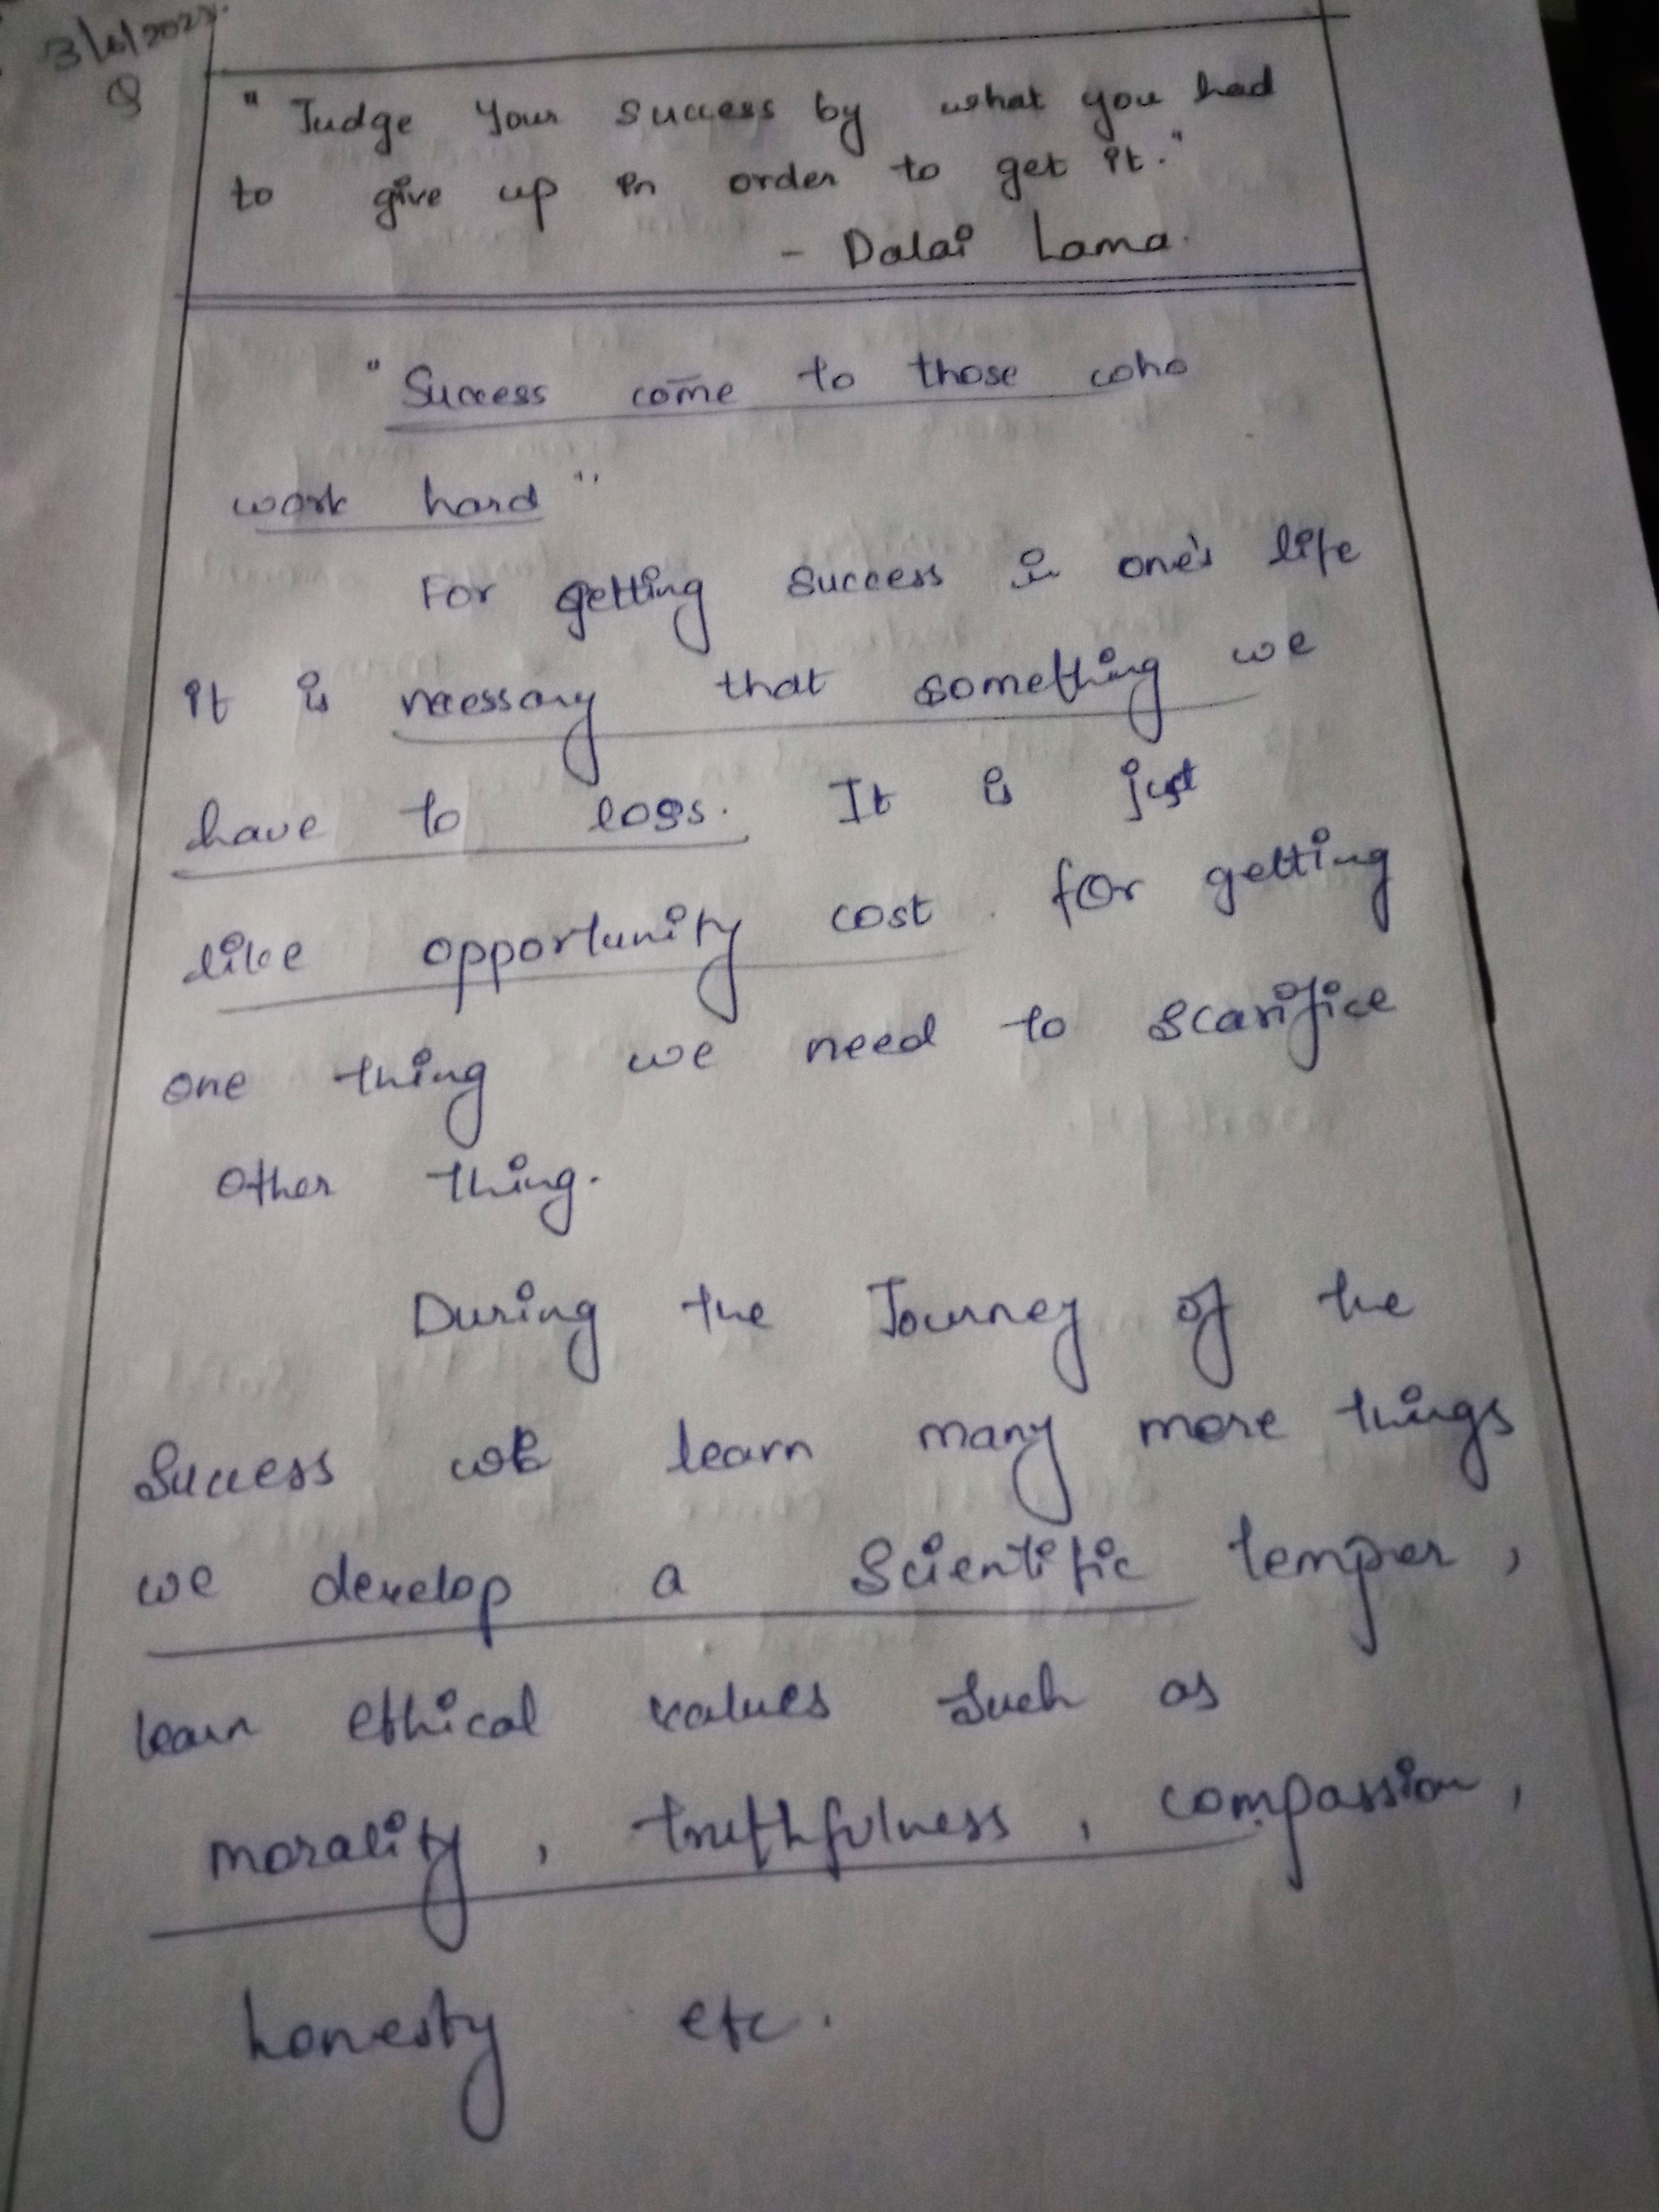 Q
"Judge Your success by what you had
to give up in order to get it."
- Dalai Lama.
"Success come to those who
work hard"
For getting success in one's life
it is necessary that something we
have to loss. It is just
like opportunity cost. for getting
one thing we need to scarifice
other thing.
During the Journey of the
Success we learn many more things
we develop a Scientific temper,
learn ethical values such as
morality, truthfulness, compassion,
honesty etc.